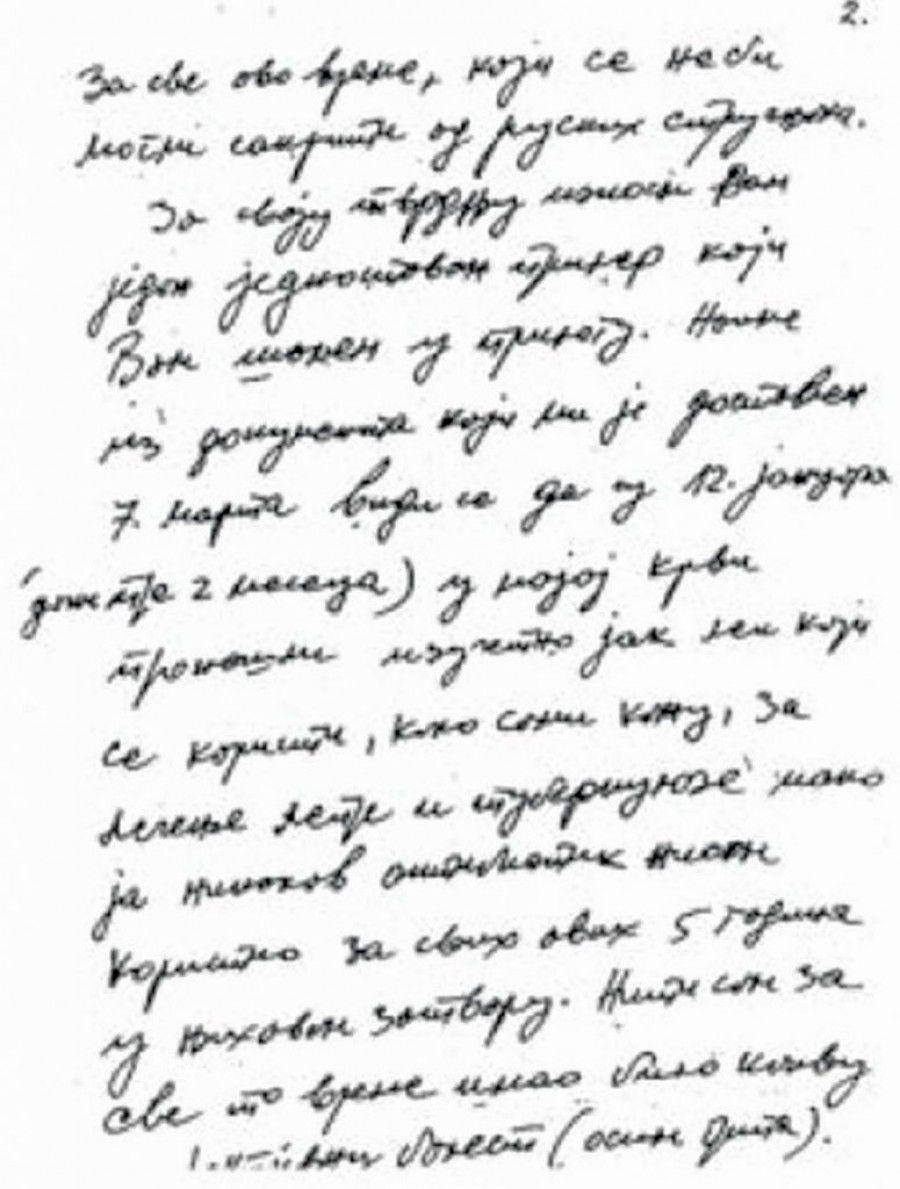 2.
За све ово време, који се не би
могли сакрити од руских стручњака.
За своју тврдњу износим Вам
један једноставан пример који
Вам шаљем у прилогу. Наиме
из документа који ми је достављен
7. марта види се да су 12. јануара
(дакле пре 2 месеца) у мојој крви
пронашли изузетно јак лек који
се користи, како сами кажу, за
лечење лепре и туберкулозе иако
ја никакав антибиотик нисам
користио за свих ових 5 година
у њиховом затвору. Нити сам за
све то време имао било какву
болест (осим грипа).